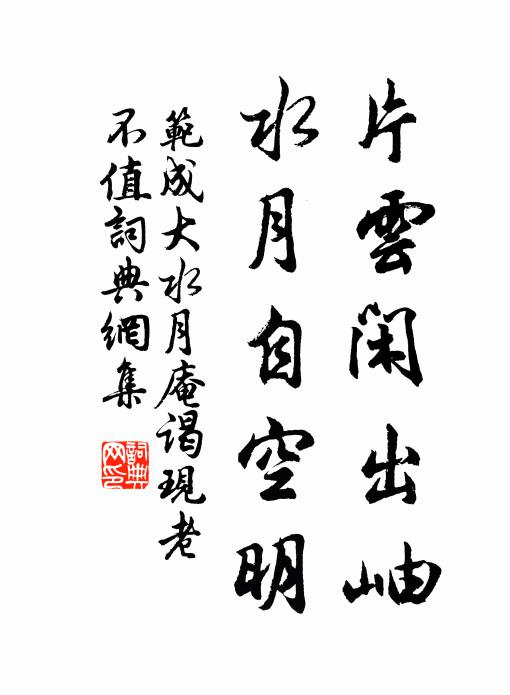 片雲閑出岫
水月自空明
範成大水月庵謁現老
不值詞典網集
詞典网印